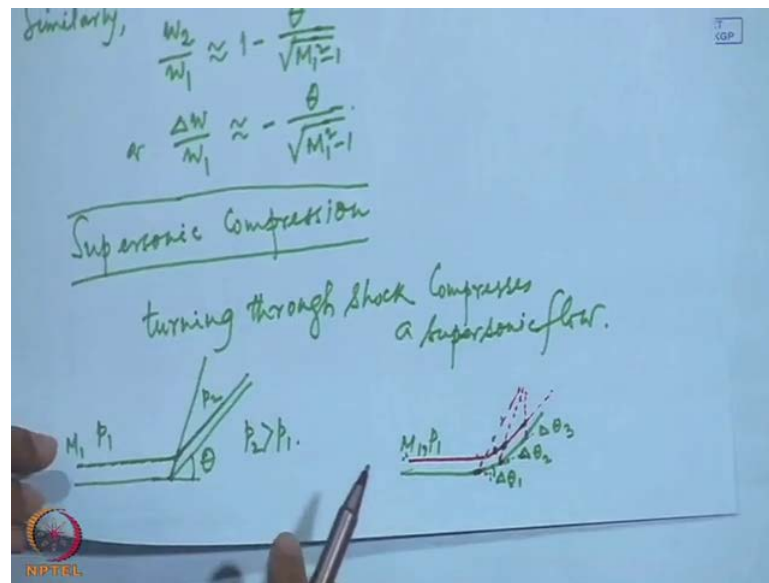 Similarly, w₂/w₁ ≈ 1 - θ/√(M₁²-1)
or Δw/w₁ ≈ - θ/√(M₁²-1).
Supersonic Compression
turning through shock Compresses
a supersonic flow.
M₁ p₁ p₂ θ p₂>p₁.
M₁, p₁ Δθ₁ Δθ₂ Δθ₃
KGP
NPTEL